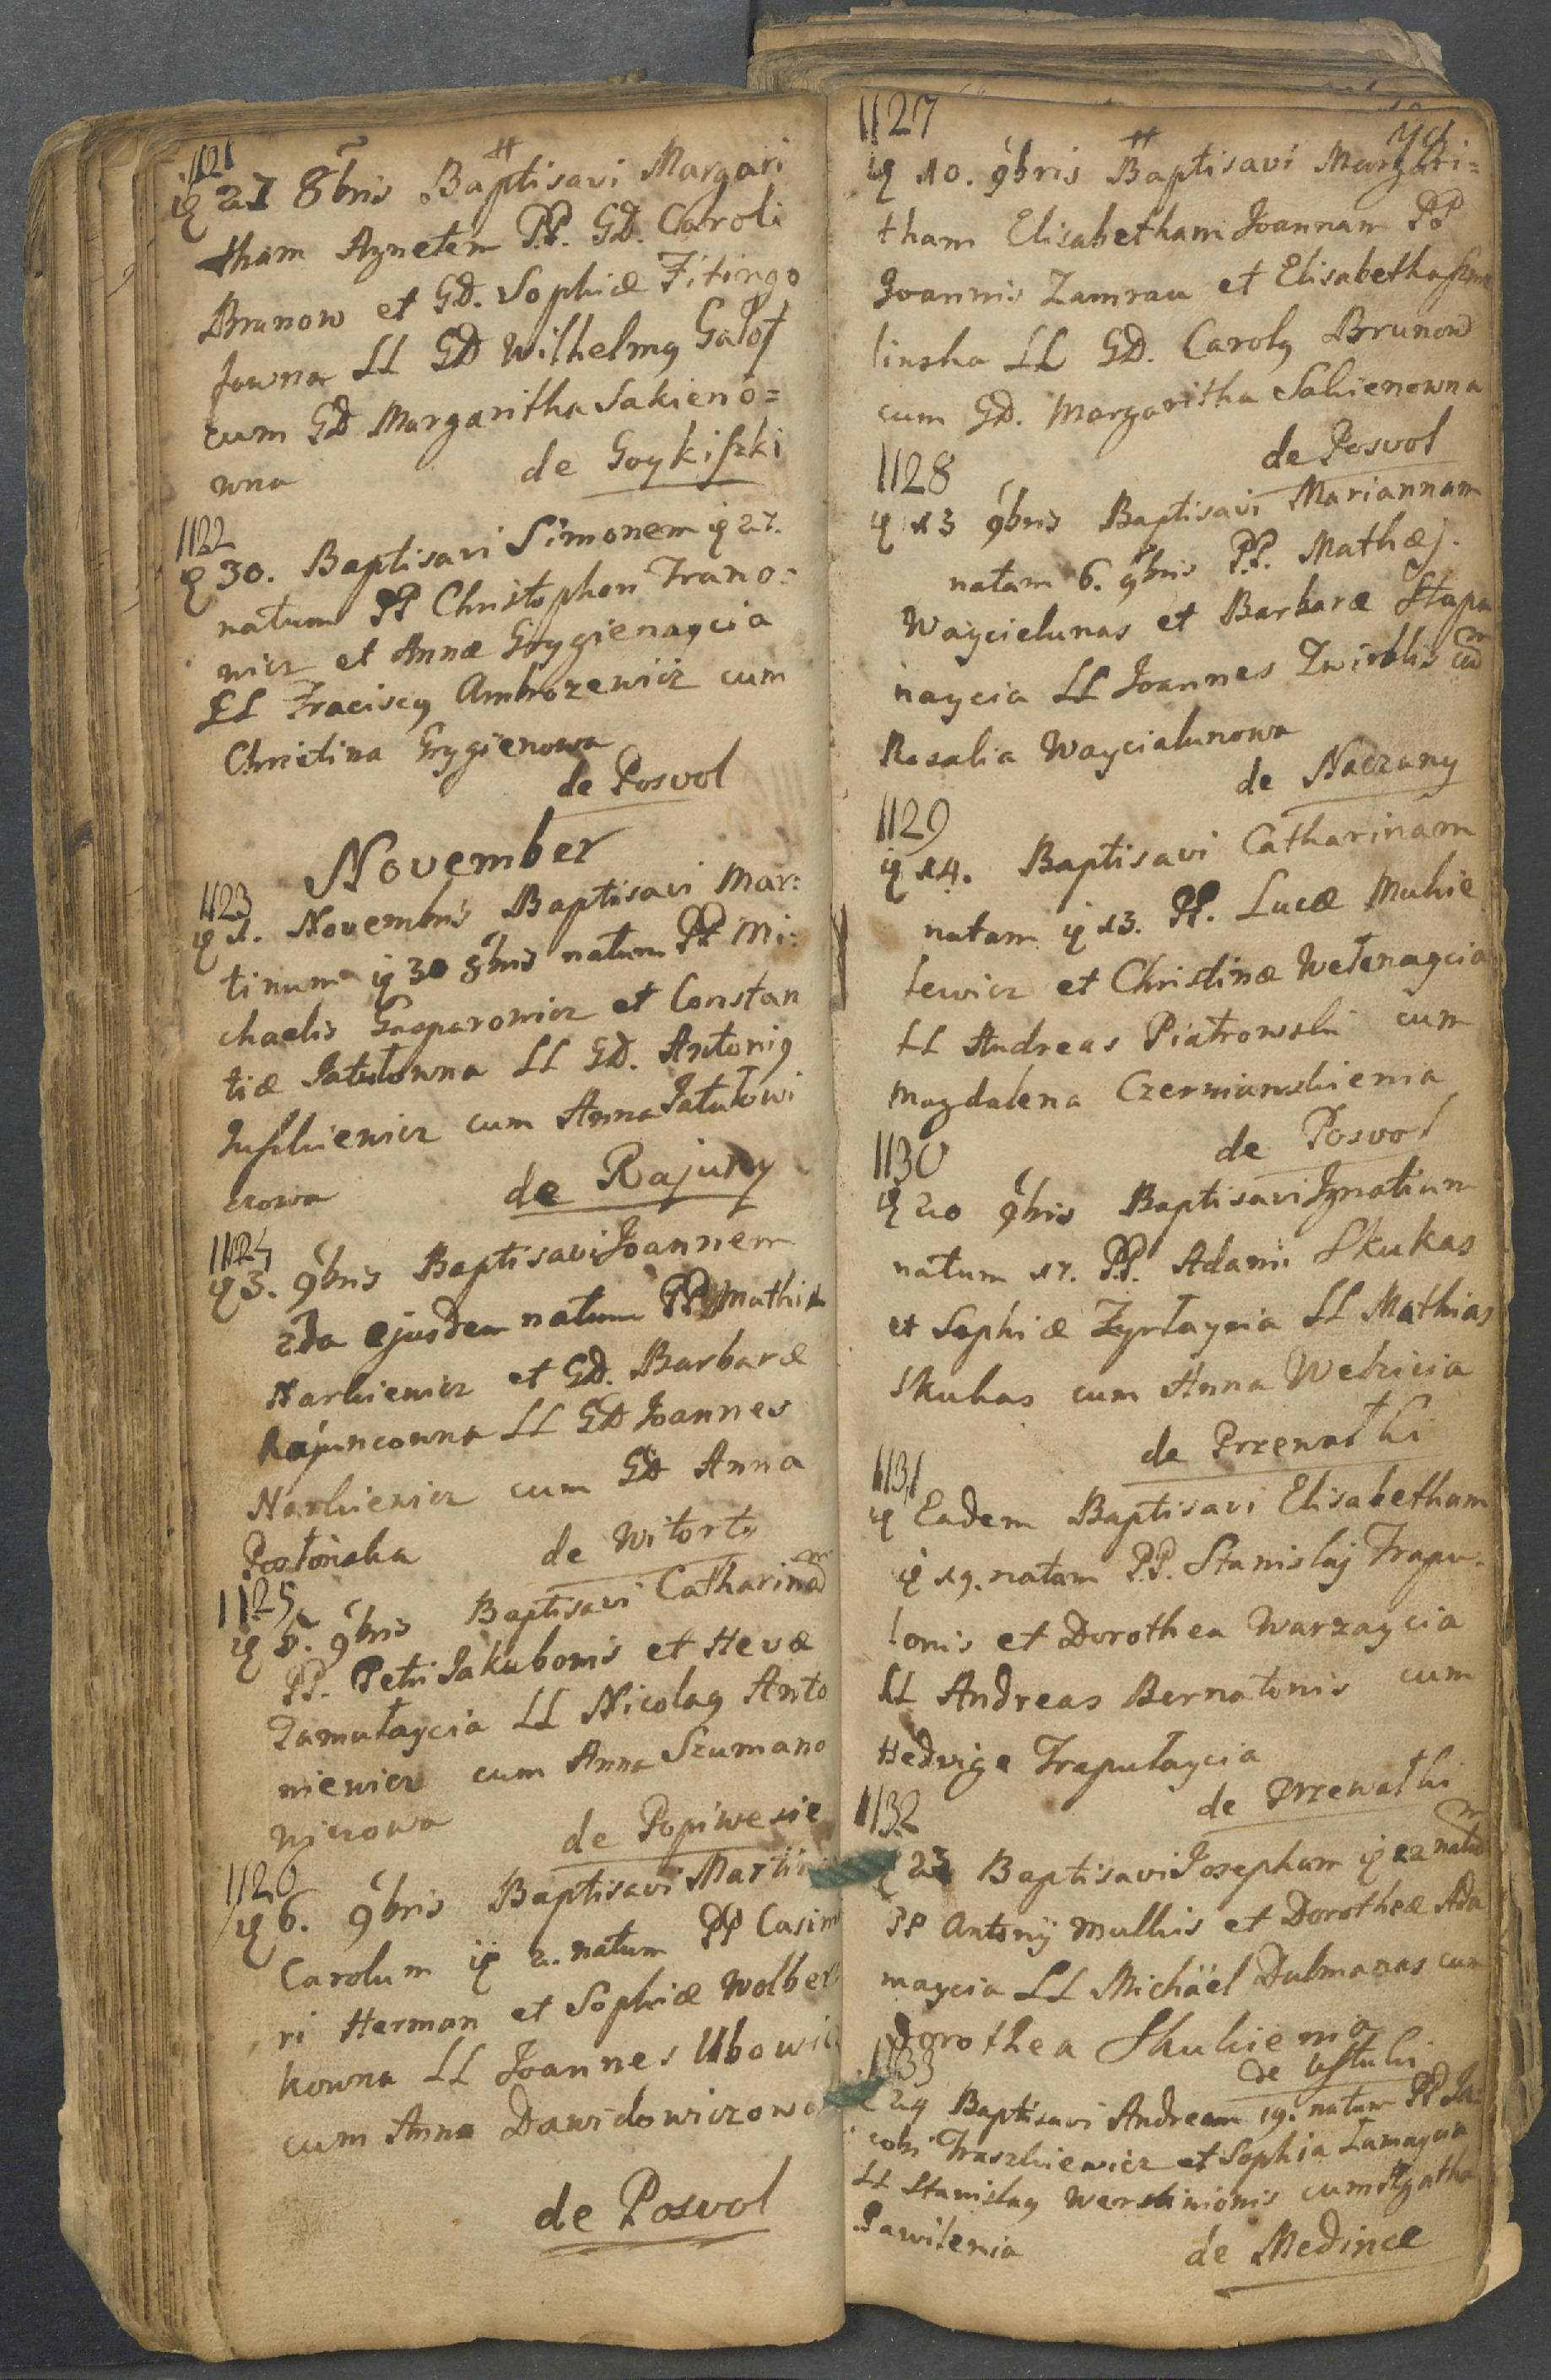 1121
27 8bris Baptisavi Margari
tham Agnetem P.P. GD. Caroli
Brunow et GD. Sophiæ Fitingo
fowna LL GD Wilhelmq
cum GD Margaritha Sakieno=
wna de Goykiszki
1122
30. Baptisavi Simonem 27.
natum PP Christophori Frano=
wicz et Annæ Grygienaycia
LL Fraciscq Ambrozewicz cum
Christina Grygienowa
de Posvol
November
1123
1. Novembris Baptisavi Mar:
tinum 30 8bris natum PP Mi:
chaelis Gasparowicz et Constan
tiæ Jatultowna LL GD. Antoniq
cum Anna Jatułowi
czowa de Rajuny
1124
3. 9bris Baptisavi Joannem
2da ejusdem natum PP Mathiæ
Narkiewicz et GD. Barbaræ
Rajuncowna LL GD Joannes
Narkiewicz cum GD Anna
Postonska de Witorty
1125
5. 9bris Baptisavi Catharinam
PP. Petri Jakubonis et Hevæ
Zamułaycia LL Nicolaq Anto
niewicz cum Anna Szumano
wiczowa de Popiwesie
1126
6. 9bris Baptisavi Martin
Carolum 2. natum PP Casimi
ri Herman et Sophiæ Wolber
kowna LL Joannes Ubowic
cum Anna Dawidowiczowa
de Posvol
1127
10. 9bris Baptisavi Margari=
tham Elisabetham Joannam PP
Joannis Zamrau et Elisabetha
linska LL GD. Carolq Brunow
cum GD. Margaritha Sakienowna
de Posvol
1128
13 9bris Baptisavi Mariannam
natam 6. 9bris P.P. Mathæj.
Waycielunas et Barbaræ Stapu
naycia LL Joannes Zwirblis cum
Rosalia Waycialunowa
de Naczuny
1129
14. Baptisavi Catharinam
natam 13. PP. Lucæ Mukie
lewicz et Christinæ Wełenaycia
LL Andreas Piatrowski cum
Magdalena Czerniawskienia
de Posvol
1130
20 9bris Baptisavi Ignatium
natum 17. P.P. Adami Skukas
et Sophiæ Zyrłaycia LL Mathias
Skukas cum Anna Welzicia
de Przewałki
1131
Eadem Baptisavi Elisabetham
19. natam P.P. Stanislaj Trapu-
lonis et Dorothea Warzaycia
LL Andreas Bernatonis cum
Hedvige Trapułaycia
de Przewałki
1132
23 Baptisavi Josephum 22 natum
PP Antonij Mulkis et Dorotheæ Ada
maycia LL Michäel Dulmanas cum
Dorothea Skukienia
de Ustuki
1133
24 Baptisavi Andream 19. natum PP Ja:
cobi Traszkiewicz et Sophia Łamaycia
LL Stanislaq Werskinionis cum Agatha
Pawilenia de Medince